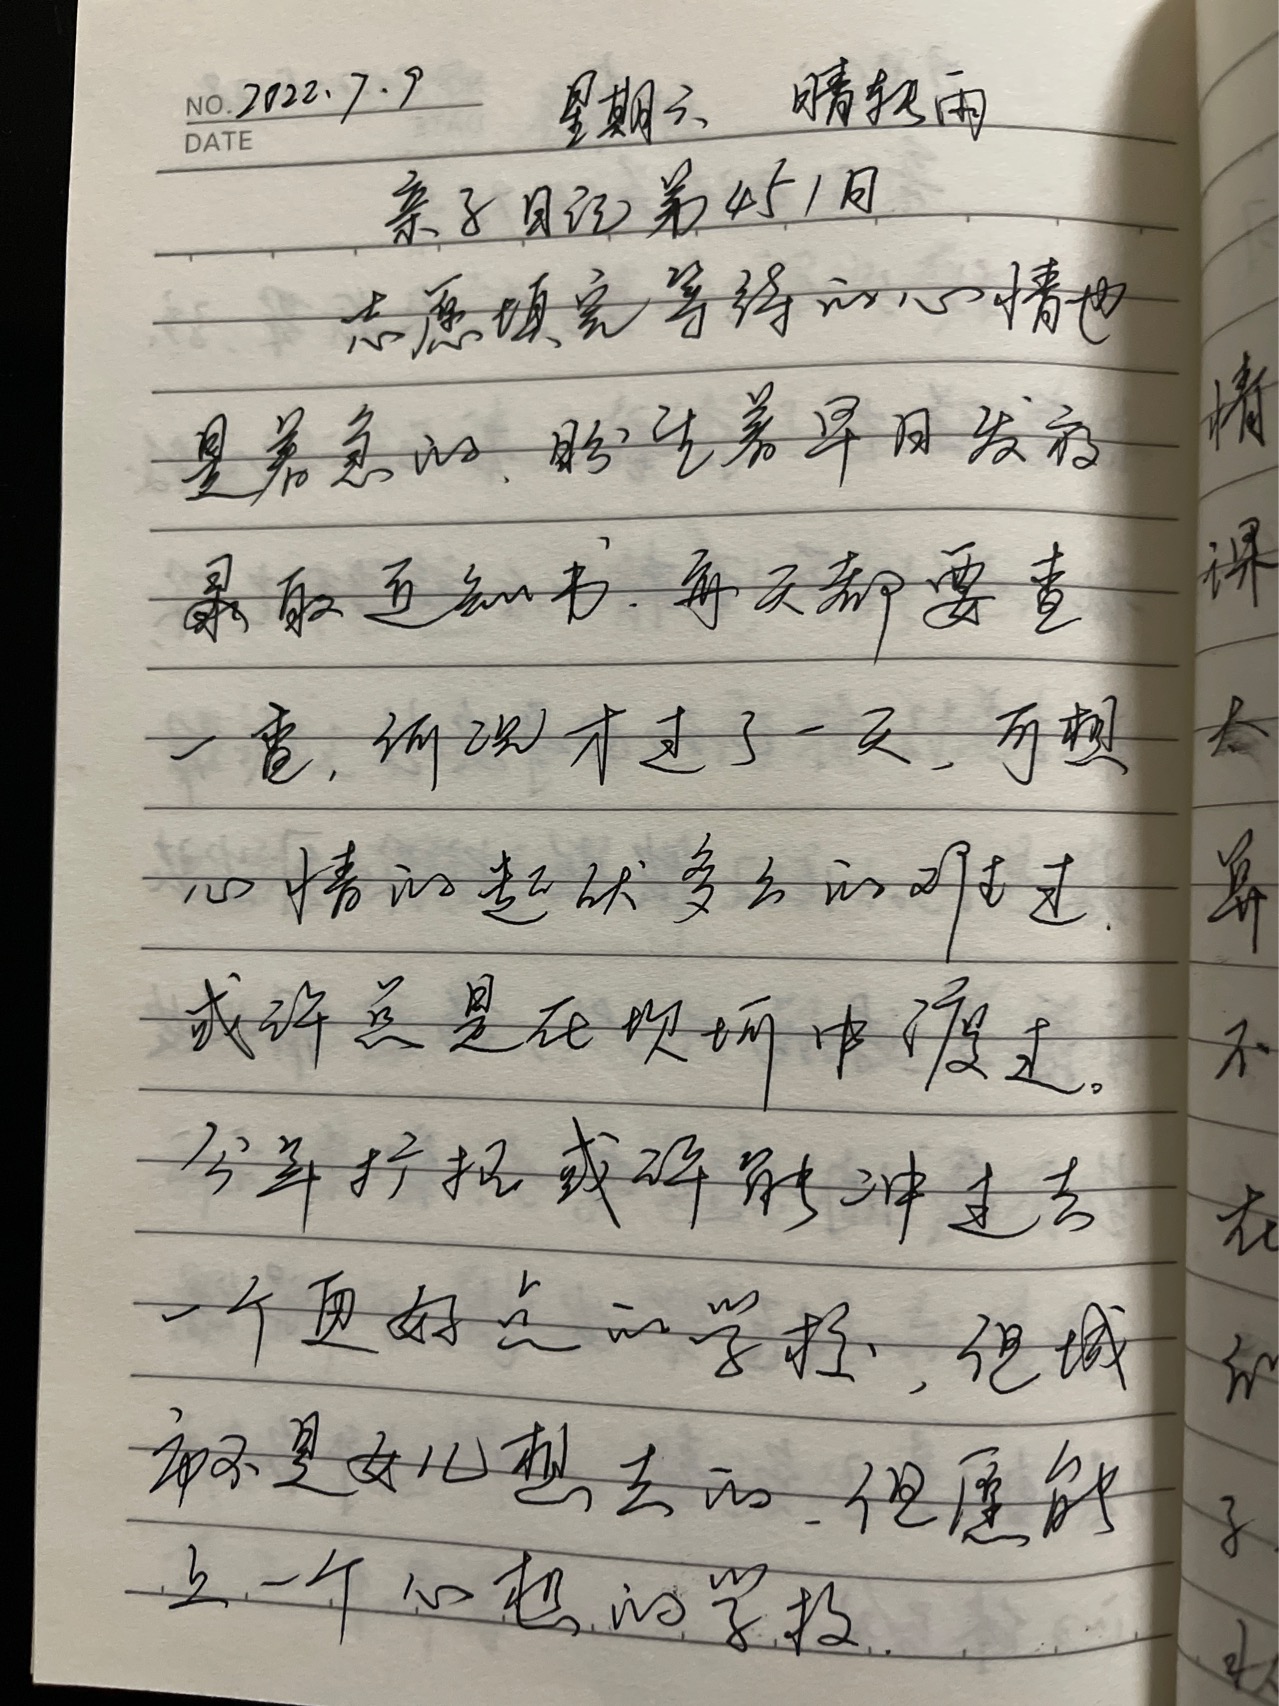 NO. 2022.7.9 星期六 晴转雨
DATE
亲子日记第451日
志愿填完等待的心情也
是着急的,盼望着早日发放
录取通知书.每天都要查
一查,何况才过了一天,可想
心情的起伏多么的难过.
或许总是在坎坷中渡过。
今年扩招或许能冲过去
一个更好点的学校,但城
市不是女儿想去的.但愿能
上一个心想的学校.
情
课
太
算
不
在
的
子